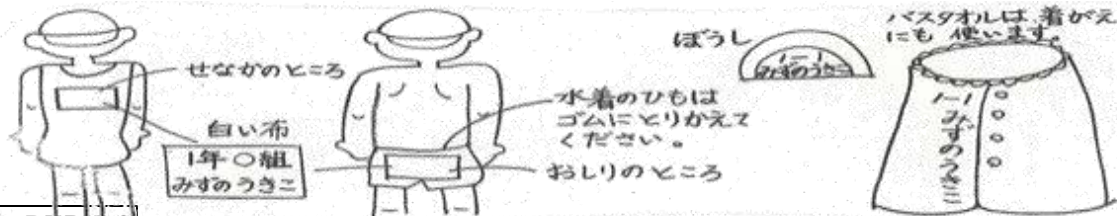 せなかのところ
白い布
1年○組
みずのうきこ
水着のひもは
ゴムにとりかえて
ください。
おしりのところ
ぼうし
1-1
みずのうきこ
バスタオルは着がえ
にも使います。
1-1
みずのうきこ